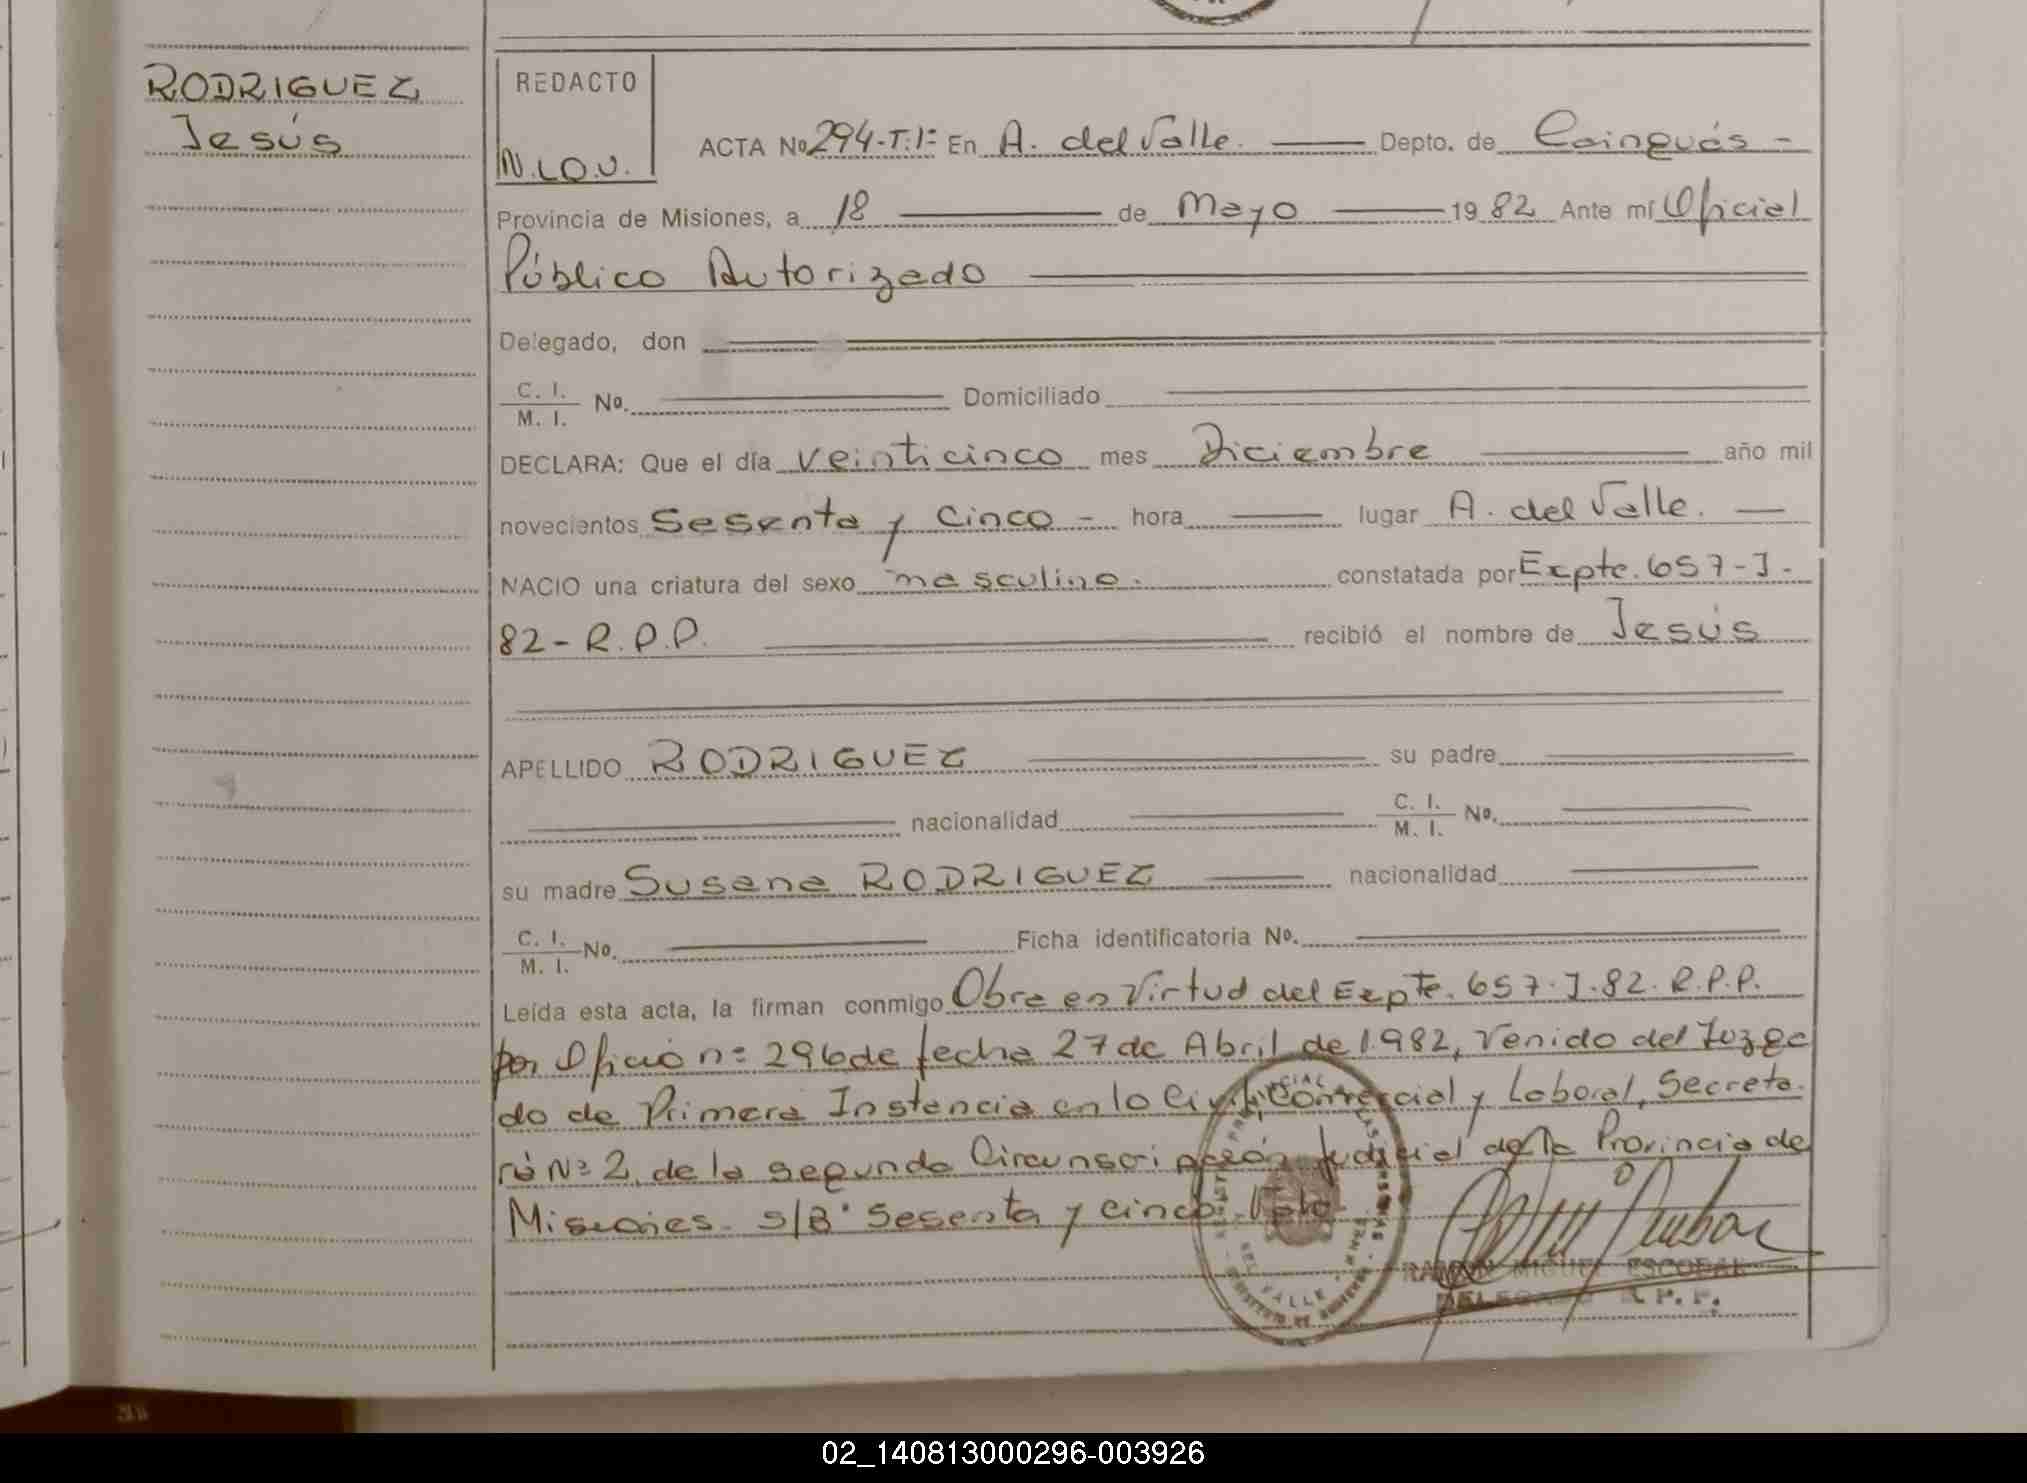 RODRIGUEZ
Jesús
REDACTO
N.LO.U.
ACTA Nº 294-T:1= En A. del Valle. Depto. de Cainguás -
Provincia de Misiones, a 18 de Mayo 1982 Ante mí Oficial
Público Autorizado
Delegado, don
C. I. / M. I. Nº. Domiciliado
DECLARA: Que el día veinticinco mes Diciembre año mil
novecientos Sesenta y Cinco - hora lugar A. del Valle.
NACIO una criatura del sexo masculino. constatada por Expte. 657-J-
82-R.P.P. recibió el nombre de Jesús
APELLIDO RODRIGUEZ su padre
nacionalidad C. I. / M. I. Nº.
su madre Susana RODRIGUEZ nacionalidad
C. I. / M. I. Nº. Ficha identificatoria Nº.
Leída esta acta, la firman conmigo Obra en Virtud del Expte. 657-J-82-R.P.P.
por Oficio nº 296 de fecha 27 de Abril de 1982, Venido del Juzga
do de Primera Instancia en lo Civil, Comercial y Laboral, Secreta-
ría Nº 2, de la segunda Circunscripción Judicial de la Provincia de
Misiones. S/Bº Sesenta y cinco. Vale
RAMON MIGUEL ESCOBAR
DELEGADO R.P.P.
DEL VALLE
02_140813000296-003926